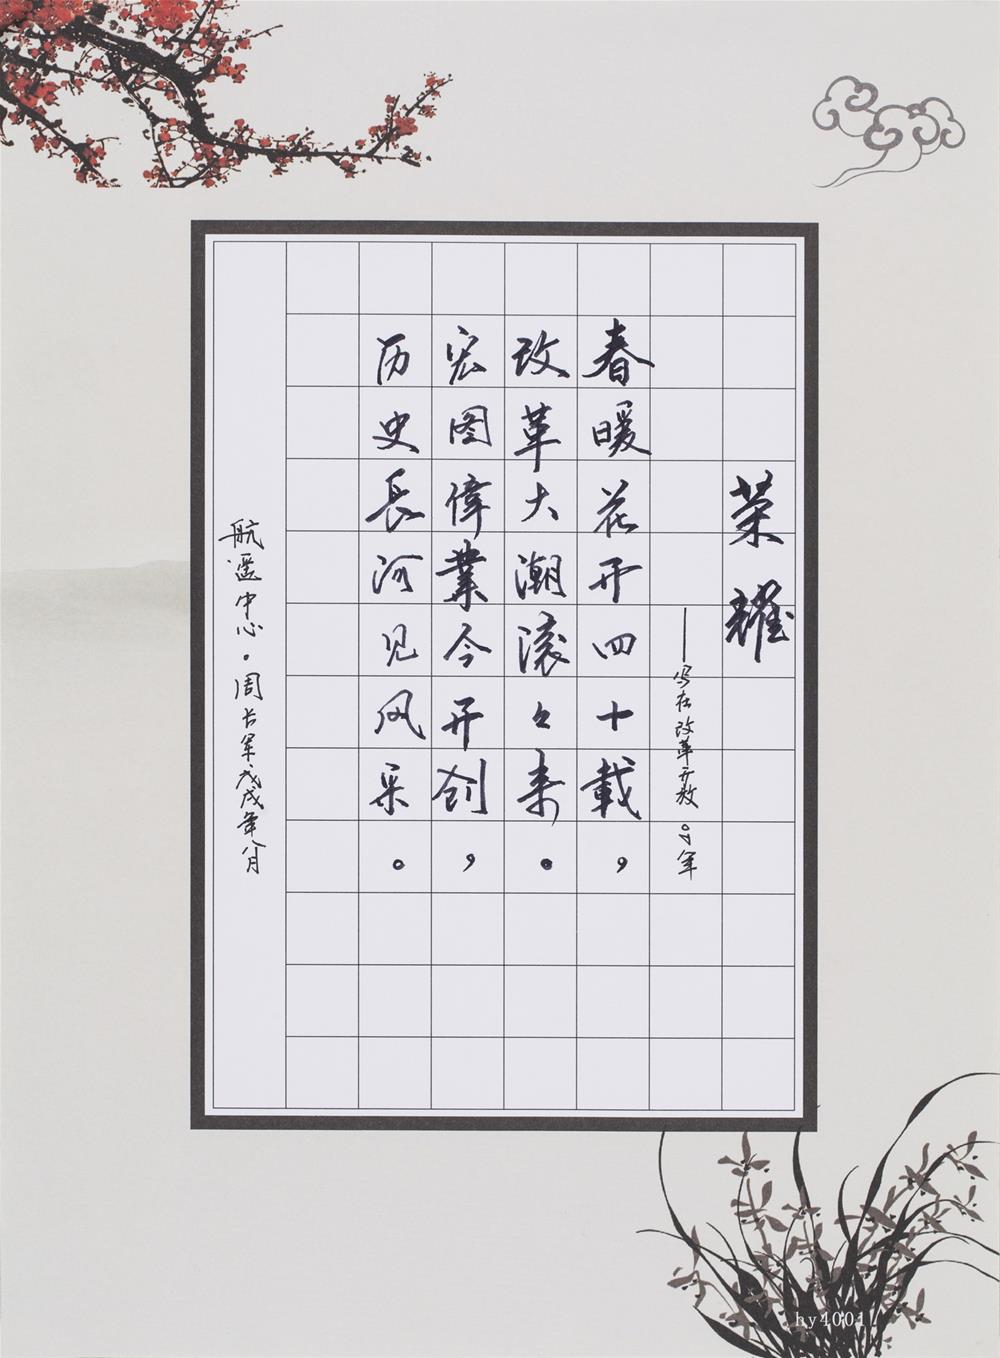 荣耀
——写在改革开放40年
春暖花开四十载，
改革大潮滚々来。
宏图偉業今开创，
历史長河见风采。
航遥中心·周长军戊戌年八月
hy4001